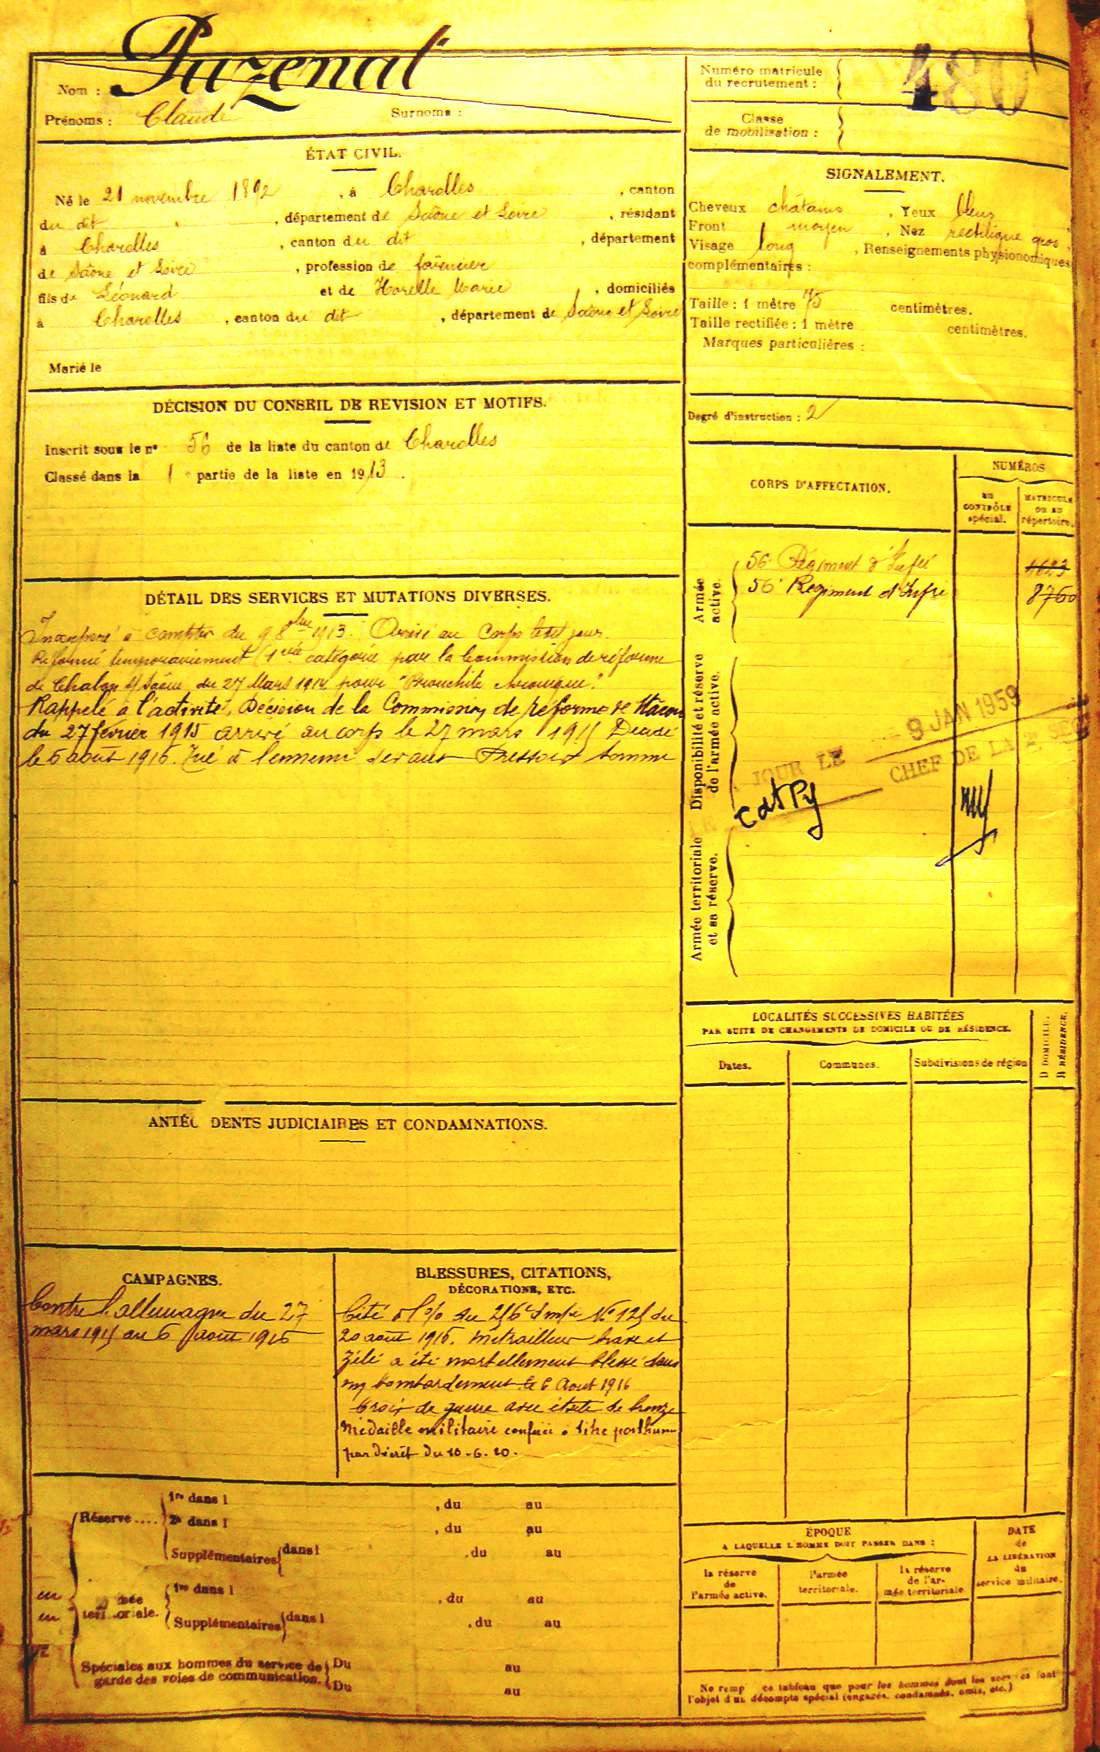 Nom : Puzenat
Prénoms : Claude Surnoms :
Numéro matricule
du recrutement : 480
Classe
de mobilisation :
ÉTAT CIVIL.
Né le 21 novembre 1892, à Charolles, canton
du dit, département de Saône et Loire, résidant
à Charolles, canton du dit, département
de Saône et Loire, profession de faïencier
fils de Léonard et de Marie, domiciliés
à Charolles, canton du dit, département de Saône et Loire
Marié le
SIGNALEMENT.
Cheveux châtains, Yeux bleus
Front moyen, Nez rectiligne gros
Visage long, Renseignements physionomiques
complémentaires :
Taille : 1 mètre 75 centimètres.
Taille rectifiée : 1 mètre centimètres.
Marques particulières :
Degré d'instruction : 2
DÉCISION DU CONSEIL DE REVISION ET MOTIFS.
Inscrit sous le nº 56 de la liste du canton de Charolles
Classé dans la 1e partie de la liste en 1913.
CORPS D'AFFECTATION.
NUMÉROS
au
CONTRÔLE
spécial.
MATRICULE
OU AU
répertoire.
Armée
active.
56e Régiment d'Infie
56e Régiment d'Infie 8760
Disponibilité et réserve
de l'armée active.
JOUR LE 9 JAN 1959
CHEF DE LA 2e
Armée territoriale
et sa réserve.
DÉTAIL DES SERVICES ET MUTATIONS DIVERSES.
Incorporé à compter du 9 8bre 1913. Arrivé au Corps ledit jour.
Réformé temporairement (1ere catégorie par la Commission de réforme
de Chalon s/ Saône du 27 Mars 1914 pour "Bronchite chronique."
Rappelé à l'activité, Décision de la Commission de réforme de Mâcon
du 27 février 1915 arrivé au corps le 27 mars 1915 Décédé
le 6 août 1916. Tué à l'ennemi devant Pressoir Somme
ANTÉC DENTS JUDICIAIRES ET CONDAMNATIONS.
LOCALITÉS SUCCESSIVES HABITÉES
PAR SUITE DE CHANGEMENTS DE DOMICILE OU DE RÉSIDENCE.
Dates. Communes. Subdivisions de région
D DOMICILE.
R RÉSIDENCE.
CAMPAGNES.
Contre l'allemagne du 27
mars 1915 au 6 août 1916
BLESSURES, CITATIONS,
DÉCORATIONS, ETC.
Cité à l'o/o du 256e d'infie Nº 125 du
20 août 1916. Mitrailleur brave et
zélé a été mortellement blessé dans
un bombardement le 6 Août 1916
Croix de guerre avec étoile de bronze
Médaille militaire conférée à titre posthume
par décret du 10-6-20.
Réserve....
1re dans l , du au
2e dans l , du au
Supplémentaires dans l , du au
territoriale.
1re dans l , du au
Supplémentaires dans l , du au
Spéciales aux hommes du service de
garde des voies de communication.
Du au
Du au
ÉPOQUE
A LAQUELLE L'HOMME DOIT PASSER DANS :
la réserve
de
l'armée active.
l'armée
territoriale.
la réserve
de l'ar-
mée territoriale
DATE
de
LA LIBÉRATION
du
service militaire.
Ne remp ce tableau que pour les hommes dont les services font
l'objet d'un décompte spécial (engagés, condamnés, omis, etc.)